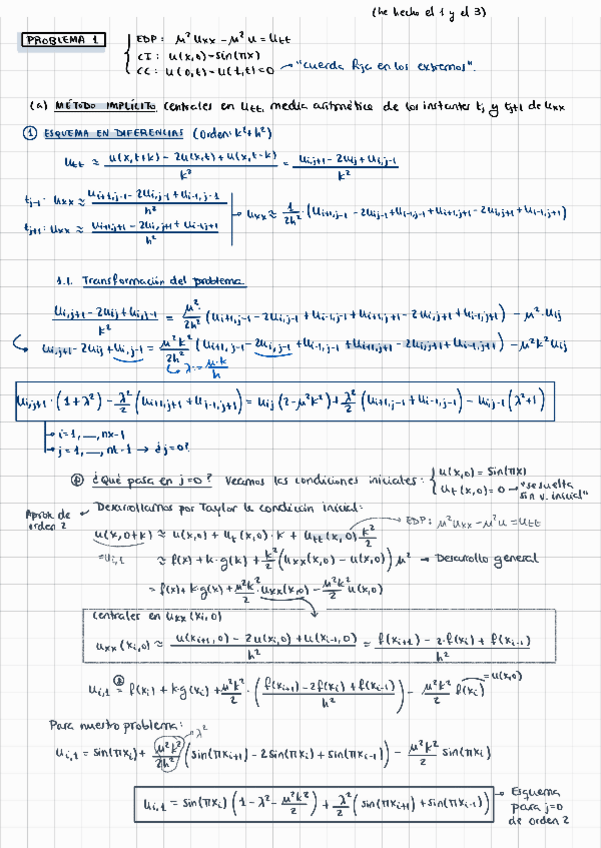 (he hecho el 1 y el 3)
PROBLEMA 1
EDP: μ²uxx - μ²u = utt
CI: u(x,0) = sin(πx)
CC: u(0,t) = u(1,t) = 0 → "cuerda fija en los extremos".
(a) MÉTODO IMPLÍCITO centrales en utt, media aritmética de los instantes tj y tj+1 de uxx
① ESQUEMA EN DIFERENCIAS (Orden: k²+h²)
utt ≈ (u(x,t+k) - 2u(x,t) + u(x,t-k))/k² = (ui,j+1 - 2uij + ui,j-1)/k²
tj-1: uxx ≈ (ui+1,j-1 - 2ui,j-1 + ui-1,j-1)/h²
tj+1: uxx ≈ (ui+1,j+1 - 2ui,j+1 + ui-1,j+1)/h²
→ uxx ≈ 1/2h² · (ui+1,j-1 - 2ui,j-1 + ui-1,j-1 + ui+1,j+1 - 2ui,j+1 + ui-1,j+1)
1.1. Transformación del problema
(ui,j+1 - 2uij + ui,j-1)/k² = μ²/2h² (ui+1,j-1 - 2ui,j-1 + ui-1,j-1 + ui+1,j+1 - 2ui,j+1 + ui-1,j+1) - μ²·uij
ui,j+1 - 2uij + ui,j-1 = μ²k²/2h² (ui+1,j-1 - 2ui,j-1 + ui-1,j-1 + ui+1,j+1 - 2ui,j+1 + ui-1,j+1) - μ²k²uij
λ = μ·k/h
ui,j+1 · (1+λ²) - λ²/2 (ui+1,j+1 + ui-1,j+1) = uij (2-μ²k²) + λ²/2 (ui+1,j-1 + ui-1,j-1) - ui,j-1 (λ²+1)
→ i = 1, ..., nx-1
→ j = 1, ..., nt-1 → ¿j=0?
¿Qué pasa en j=0? Veamos las condiciones iniciales: { u(x,0) = sin(πx)
ut(x,0) = 0 → "se suelta sin v. inicial"
Aprox. de orden 2
Desarrollamos por Taylor la condición inicial:
u(x,0+k) ≈ u(x,0) + ut(x,0)·k + utt(x,0) k²/2
EDP: μ²uxx - μ²u = utt
=ui,1 ≈ f(x) + k·g(x) + k²/2 (uxx(x,0) - u(x,0)) μ² → Desarrollo general
= f(x) + k·g(x) + μ²k²/2 · uxx(x,0) - μ²k²/2 u(x,0)
centrales en uxx(xi,0)
uxx(xi,0) ≈ (u(xi+1,0) - 2u(xi,0) + u(xi-1,0))/h² = (f(xi+1) - 2·f(xi) + f(xi-1))/h²
ui,1 = f(xi) + k·g(xi) + μ²k²/2 · ((f(xi+1) - 2f(xi) + f(xi-1))/h²) - μ²k²/2 f(xi) = u(x,0)
Para nuestro problema:
ui,1 = sin(πxi) + μ²k²/2h² (sin(πxi+1) - 2sin(πxi) + sin(πxi-1)) - μ²k²/2 sin(πxi)
λ²
ui,1 = sin(πxi) (1 - λ² - μ²k²/2) + λ²/2 (sin(πxi+1) + sin(πxi-1))
→ Esquema para j=0 de orden 2